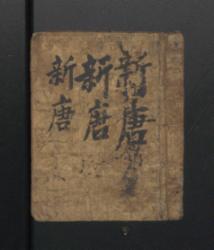 新唐
新唐
新唐